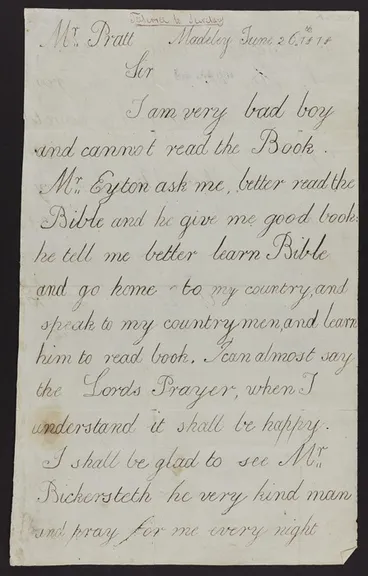 Mr. Pratt Madeley June 26th 18
Sir
I am very bad boy
and cannot read the Book.
Mr. Eyton ask me, better read the
Bible and he give me good book
he tell me better learn Bible
and go home to my country, and
speak to my countrymen, and learn
him to read book. I can almost say
the Lords Prayer, when I
understand it shall be happy.
I shall be glad to see Mr.
Bickersteth he very kind man
and pray for me every night